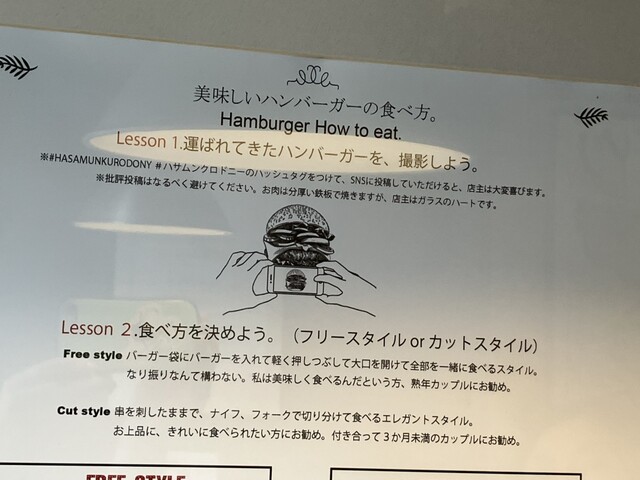 美味しいハンバーガーの食べ方。
Hamburger How to eat.
Lesson 1.運ばれてきたハンバーガーを、撮影しよう。
※#HASAMUNKURODONY #ハサムンクロドニーのハッシュタグをつけて、SNSに投稿していただけると、店主は大変喜びます。
※批評投稿はなるべく避けてください。お肉は分厚い鉄板で焼きますが、店主はガラスのハートです。
Lesson 2.食べ方を決めよう。（フリースタイル or カットスタイル）
Free style バーガー袋にバーガーを入れて軽く押しつぶして大口を開けて全部を一緒に食べるスタイル。
なり振りなんて構わない。私は美味しく食べるんだという方、熟年カップルにお勧め。
Cut style 串を刺したままで、ナイフ、フォークで切り分けて食べるエレガントスタイル。
お上品に、きれいに食べられたい方にお勧め。付き合って３か月未満のカップルにお勧め。
FREE STYLE